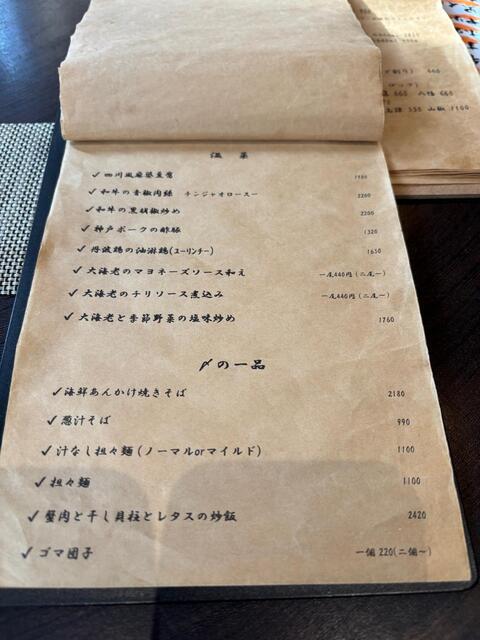 温菜
✓四川風麻婆豆腐 1980
✓和牛の青椒肉絲 チンジャオロースー 2200
✓和牛の黒胡椒炒め 2200
✓神戸ポークの酢豚 1320
✓丹波鶏の油淋鶏(ユーリンチー) 1650
✓大海老のマヨネーズソース和え 一尾440円(二尾~)
✓大海老のチリソース煮込み 一尾440円(二尾~)
✓大海老と季節野菜の塩味炒め 1760
〆の一品
✓海鮮あんかけ焼きそば 2180
✓葱汁そば 990
✓汁なし担々麺(ノーマルorマイルド) 1100
✓担々麺 1100
✓蟹肉と干し貝柱とレタスの炒飯 2420
✓ゴマ団子 一個220(二個~)
660
660 八海 660
550 山崎 1100